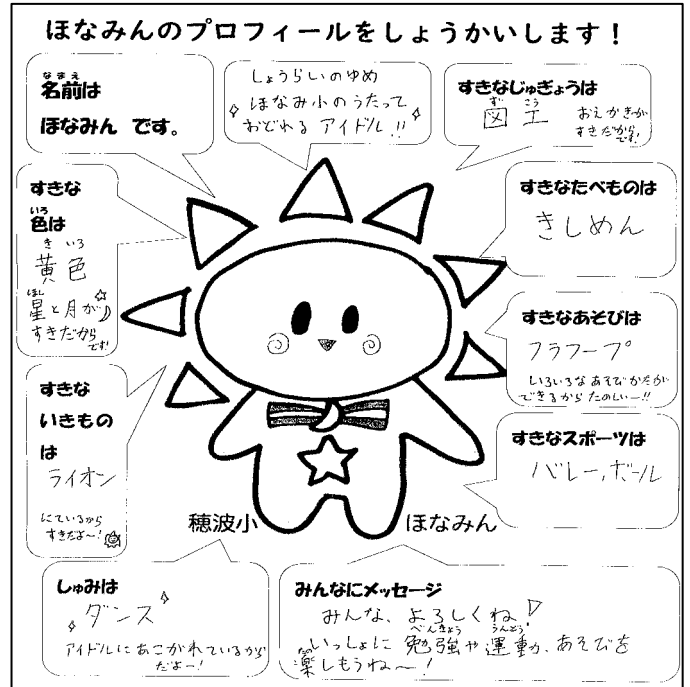 ほなみんのプロフィールをしょうかいします！
名前は
なまえ
ほなみん です。
しょうらいのゆめ
ほなみ小のうたって
おどれる アイドル!!
すきなじゅぎょうは
図工
ずこう
おえかきが
すきだから
です!
すきな
色は
いろ
黄色
きいろ
星と月が
ほし
すきだから
です!
すきなたべものは
きしめん
すきなあそびは
フラフープ
いろいろな あそびかたが
できるから たのしいー!!
すきな
いきもの
は
ライオン
にているから
すきだよ〜!
すきなスポーツは
バレーボール
穂波小 ほなみん
しゅみは
ダンス
アイドルにあこがれているから
だよー!
みんなにメッセージ
みんな、よろしくね!
べんきょう うんどう
いっしょに 勉強や運動、あそびを
楽しもうね〜!